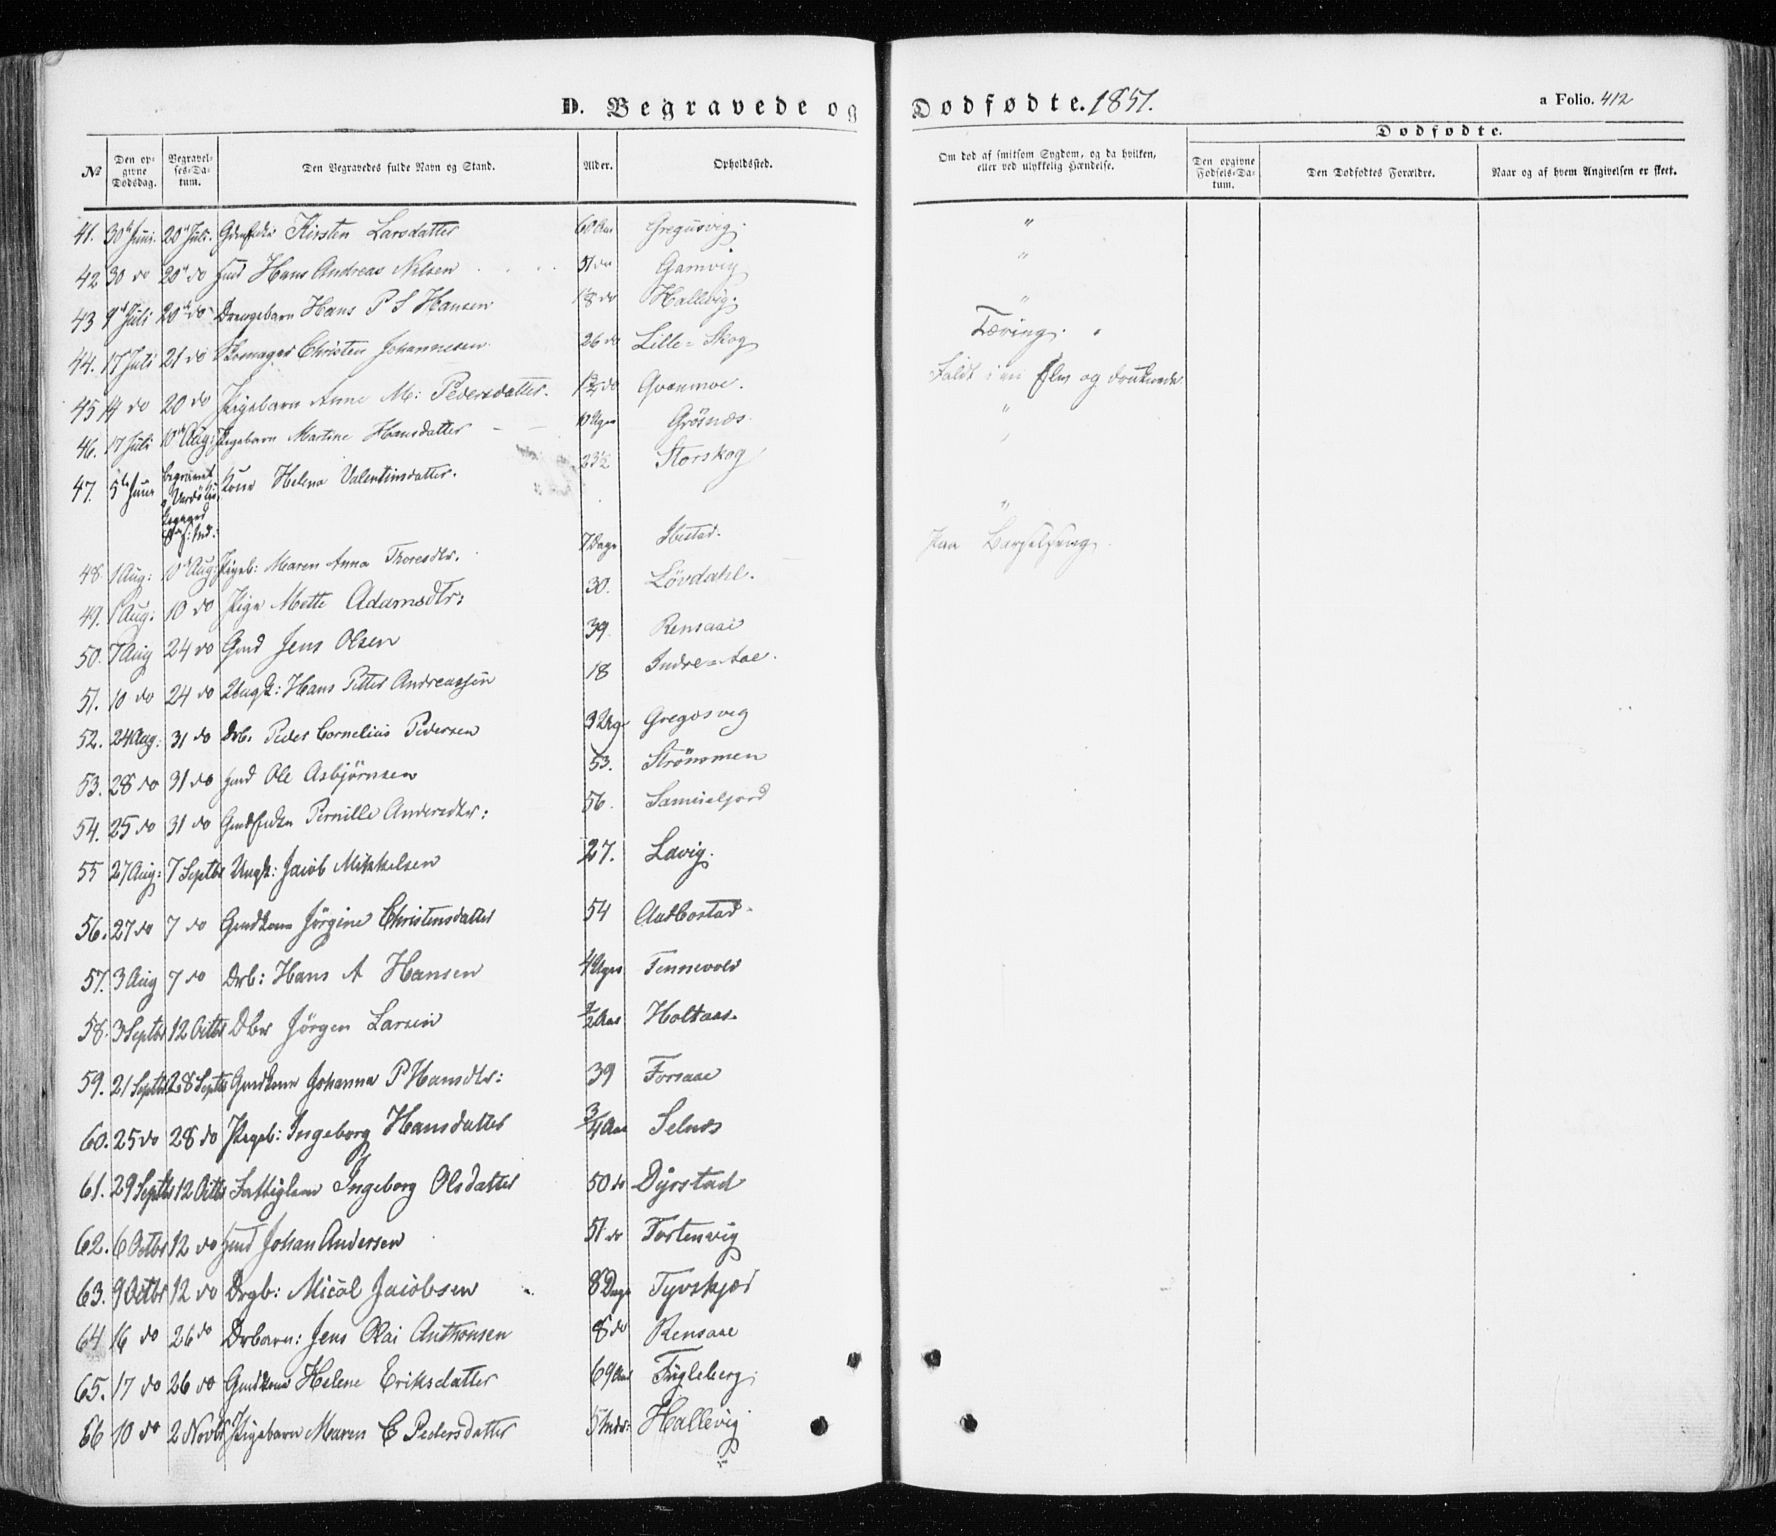 D. Begravede og Dødfødte. 1851.
a Folio. 412
Dødfødte.
No
Den opgivne Dødsdag.
Begravelses-Datum.
Den Begravedes fulde Navn og Stand.
Alder.
Opholdssted.
Om død af smitsom Sygdom, og da hvilken, eller ved ulykkelig Hændelse.
Den opgivne Fødsels-Datum.
Den Dødfødtes Forældre.
Naar og af hvem Angivelsen er skeet.
41. 30te Juni. 20de Juli. Kirsten Larsdatter 60 Aar Gregusvig. "
42 30 do 20de do Hans Andreas Nilsen 51 do Gamvig "
43 9de Juli 20de do Drengebarn Hans P S Hansen 18 do Hallevig. "
44. 17 Juli 21 do Christen Johannesen 26 do Lille-Skog Tæring.
45 14 do 20 do Pigebarn Anne M: Pedersdatter. Qvanmoe. Faldt i en Elv og druknede
46. 17 Juli 10de Aug: Pigebarn Martine Hansdatter 10 Uger Grøsnæs "
47. 5te Juni begravet Kone Helena Valentinsdatter. 23½ Storskog "
48 1 Aug: 10de Aug: Pigeb: Maren Anna Thoresdtr. 7 Dage Ibestad. "
49. 1 Aug: 10 do Pige Mette Adamsdtr: 30. Løvdahl. Paa Barselseng.
50. 7 Aug 24 do Gmd Jens Olsen 39 Rensaai
51. 10 do 24 do Ungk: Hans Petter Andreassen 18 Indre-Aae.
52. 24 Aug: 31 do Drb. Peder Cornelius Pedersen 3 Uger Gregosveg
53. 28 do 31 do Ole Asbjørnsen 53. Strømmen
54. 25 do 31 do Pernille Andersdtr: 56. Samueljord
55 27 Aug: 7 Septbr Ungk: Jacob Mikkelsen 27. Lavig.
56. 27 do 7 do Gmdkone Jørgine Christensdatter 54
57. 3 Aug 7 do Drb: Hans A Hansen 4 Uger Tennevold
58. 3 Septbr 12 Octbr Jørgen Larsen ½ Aar Holtaas.
59. 21 Septbr 28 Septbr Gmdkone Johanna P Hansdtr: 39 Forsaae
60. 25 do 28 do Pigeb: Ingeborg Hansdatter 3/4 Aar Selnæs
61. 29 Septbr 12 Octbr Fattiglem Ingeborg Olsdatter 50 do Dyrstad
62. 6 Octbr 12 do Johan Andersen 51 do Fortenvig
63. 9 Octbr 12 do Drgb: Micael Jacobsen 8 Dage Tyvskjær
64 16 do 26 do Drbarn: Jens Olai Anthonsen 8 do Rensaae
65. 17 do 26 do Gmdkone Helene Eriksdatter 69 Aar Fugleberg.
66 10 do 2 Novbr Pigebarn Maren C Pedersdatter 5 Mdr: Hallevig